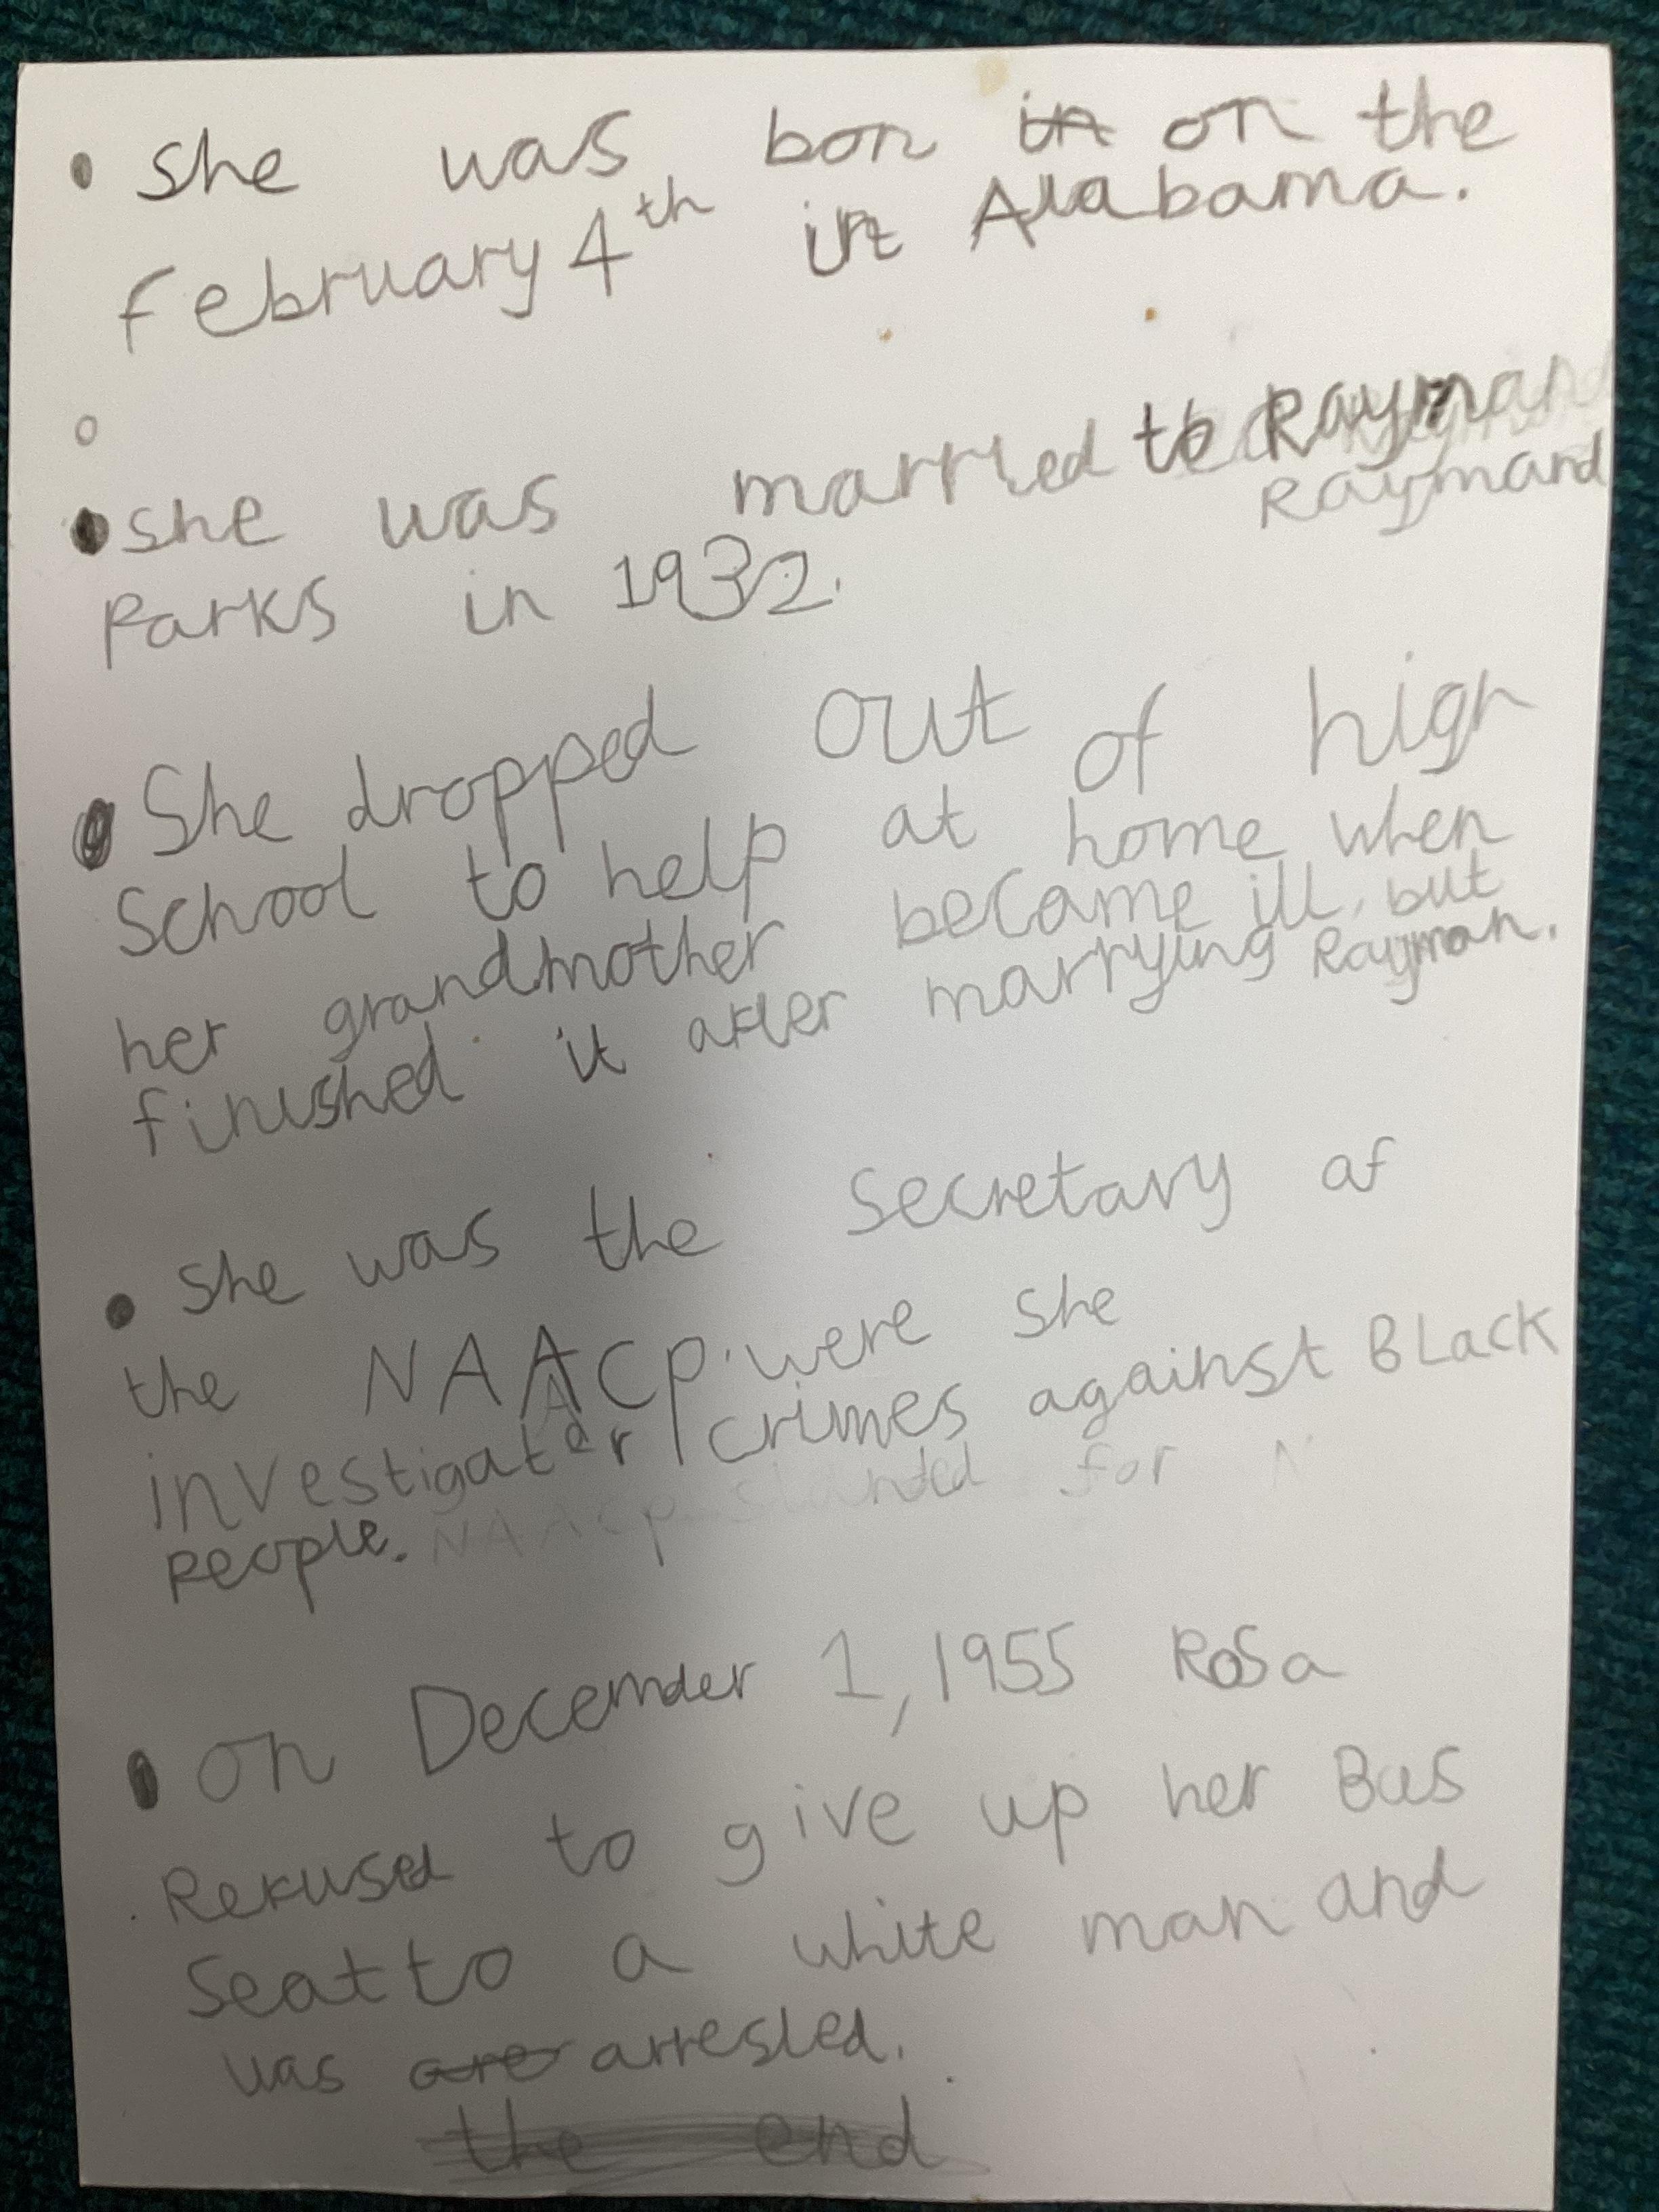 • she was bon in on the
February 4th in Alabama.
• she was married to Rayman
Raymand
Parks in 1932.
• She dropped out of high
School to help at home when
her grandmother became ill, but
finished it after marrying Rayman.
• she was the Secretary of
the NAACP were she
investigater crimes against BLack
People. NAACP standed for N
• on Decemder 1, 1955 Rosa
Refused to give up her Bus
Seat to a white man and
was are arrested.
the end